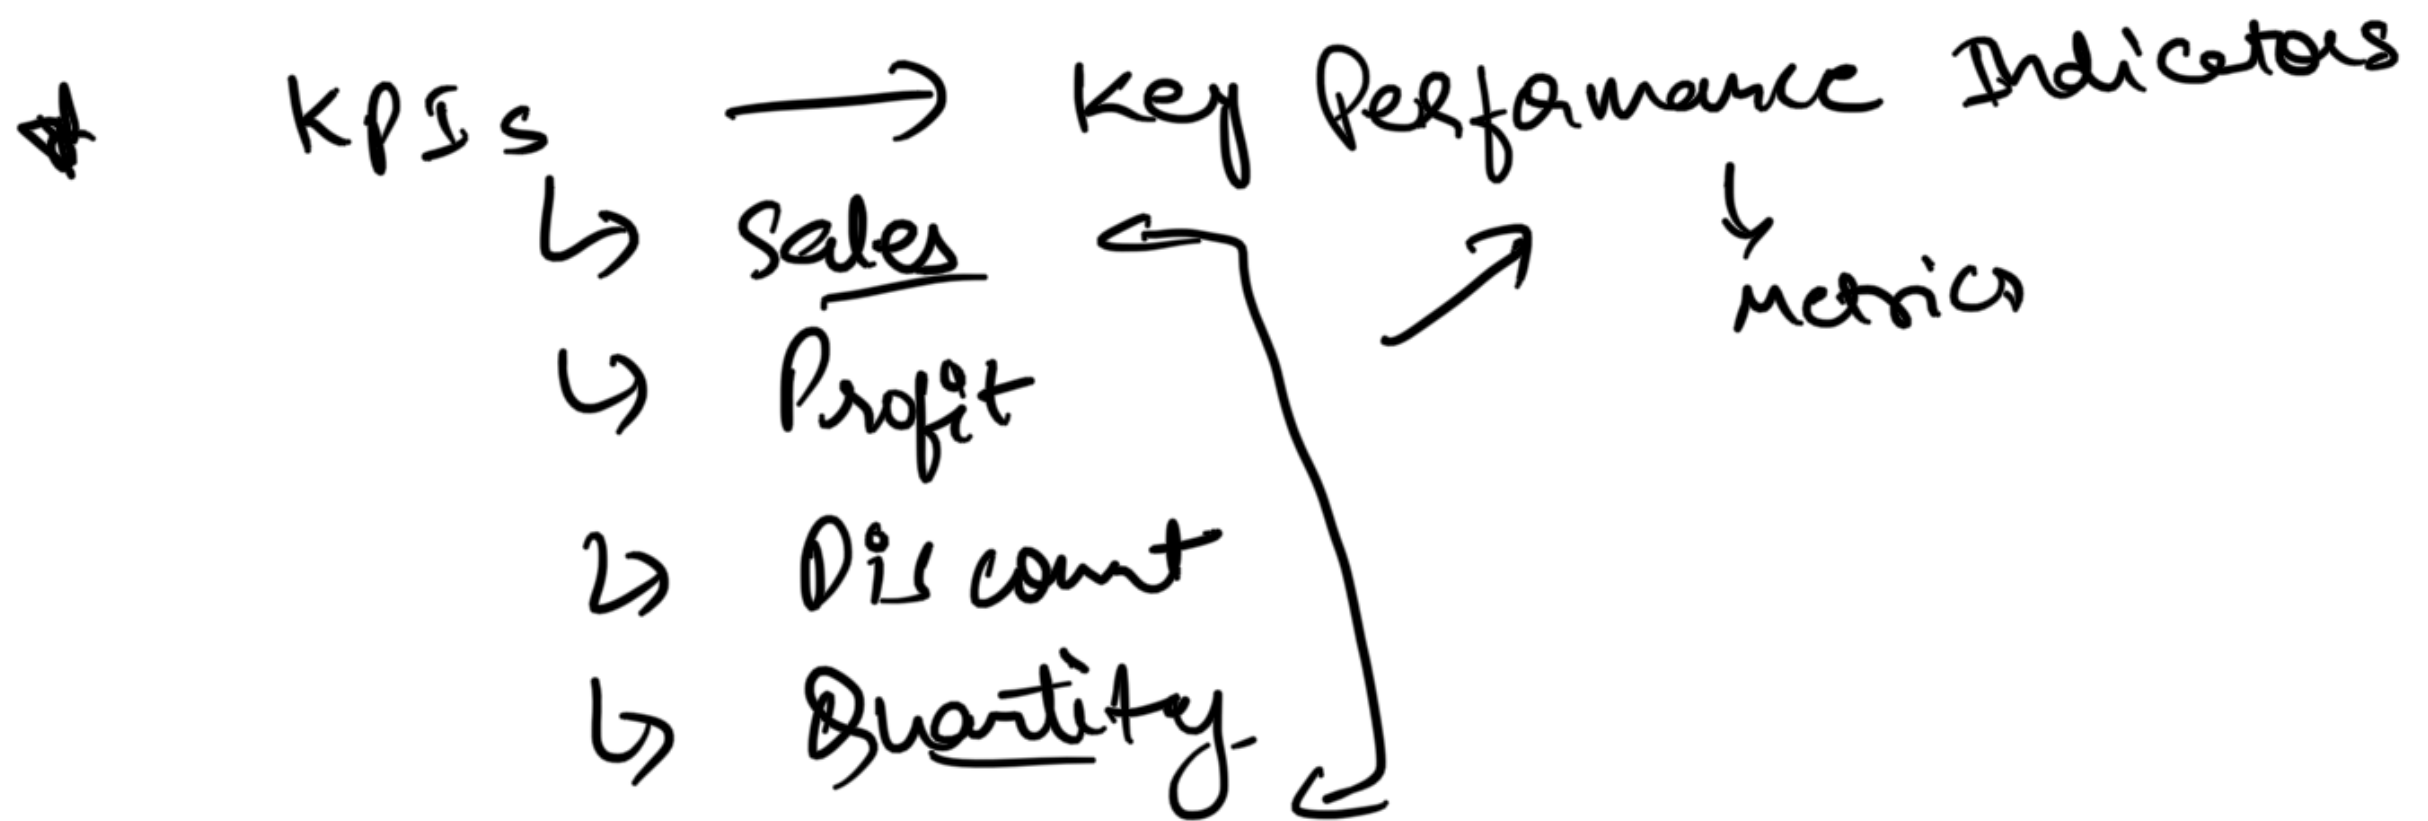 KPIs → Key Performance Indicators
↳ Sales
Metrics
↳ Profit
↳ Discount
↳ Quantity